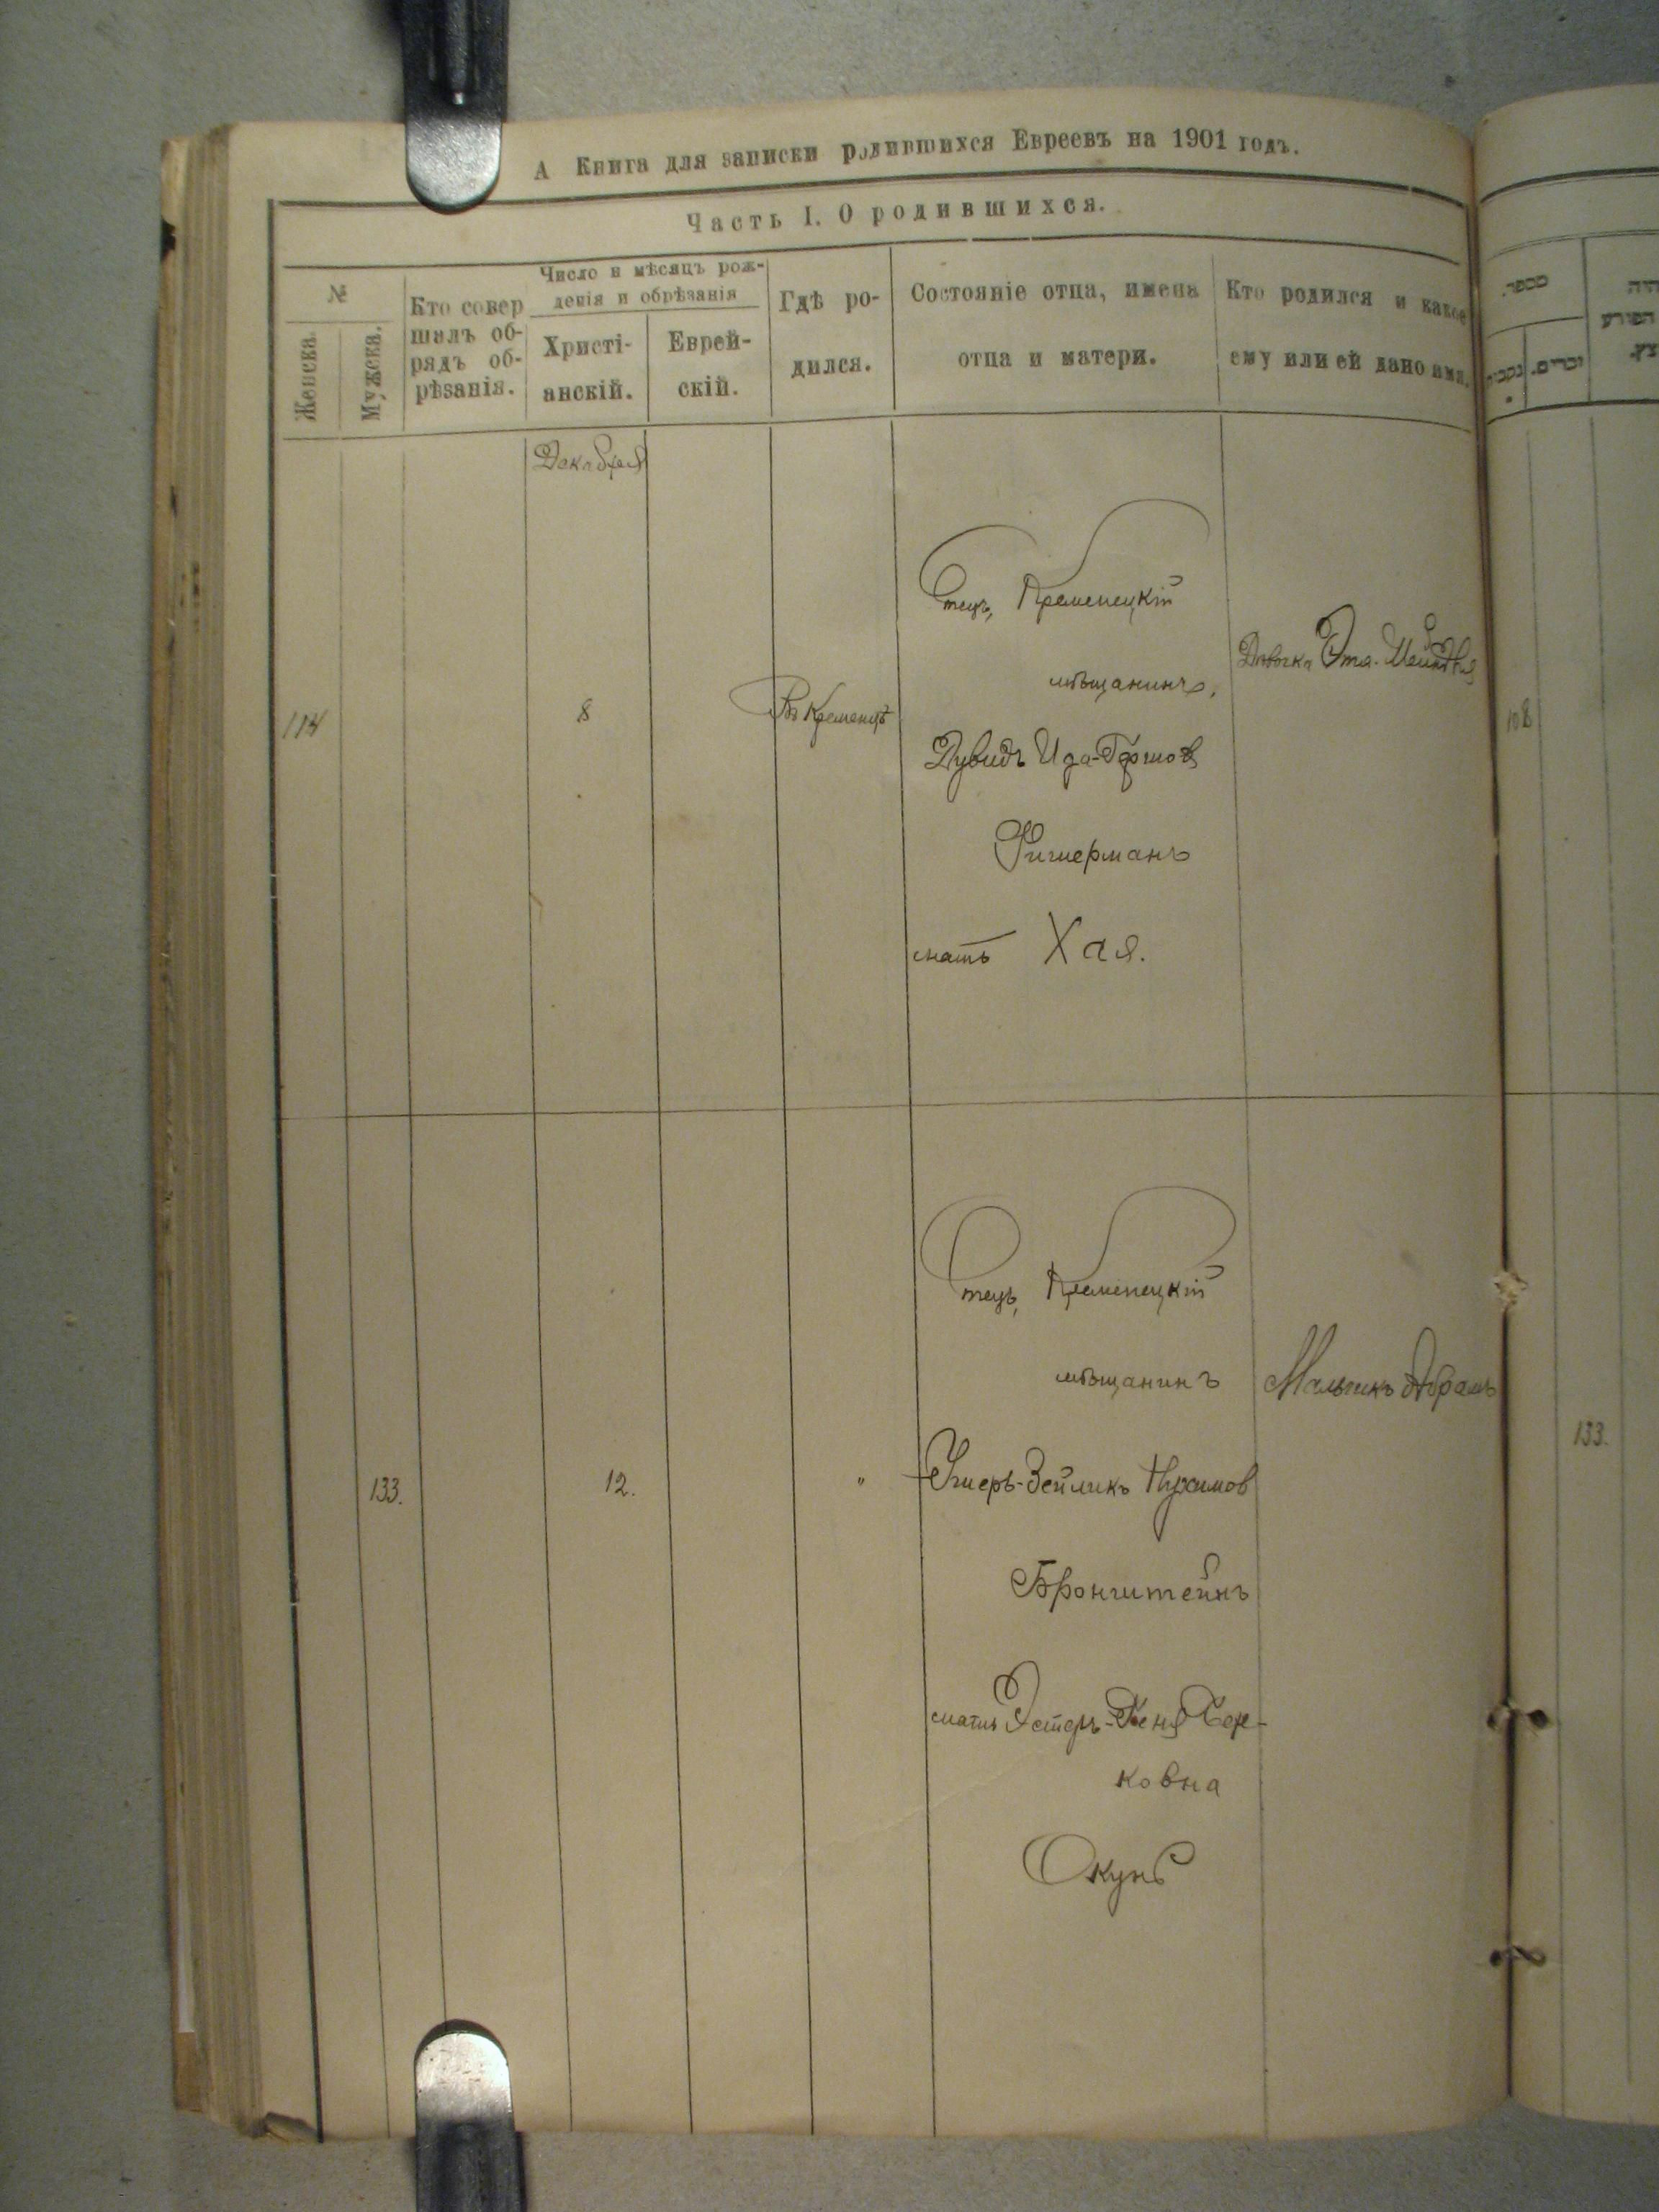 А Книга для записки родившихся Евреевъ на 1901 годъ.
Часть I. О родившихся.
№
Женска.
Мужеска.
Кто совер
шалъ об-
рядъ об-
рѣзанія.
Число и мѣсяцъ рож-
денія и обрѣзанія
Христі-
анскій.
Еврей-
скій.
Гдѣ ро-
дился.
Состояніе отца, имена
отца и матери.
Кто родился и какое
ему или ей дано имя.
מספר.
נקבות
זכרים.
Декабря
114
8
Въ Кременцѣ
Отецъ, Кременецкій
мѣщанинъ,
Дувидъ
Фишерманъ
мать Хая.
Девочка Этя-
108
133.
12.
"
Отецъ, Кременецкій
мѣщанинъ
Зейликъ Нухимов
Бронштейнъ
мать Эстеръ- Бер-
ковна
Окунь
Мальчикъ Абрамъ
133.